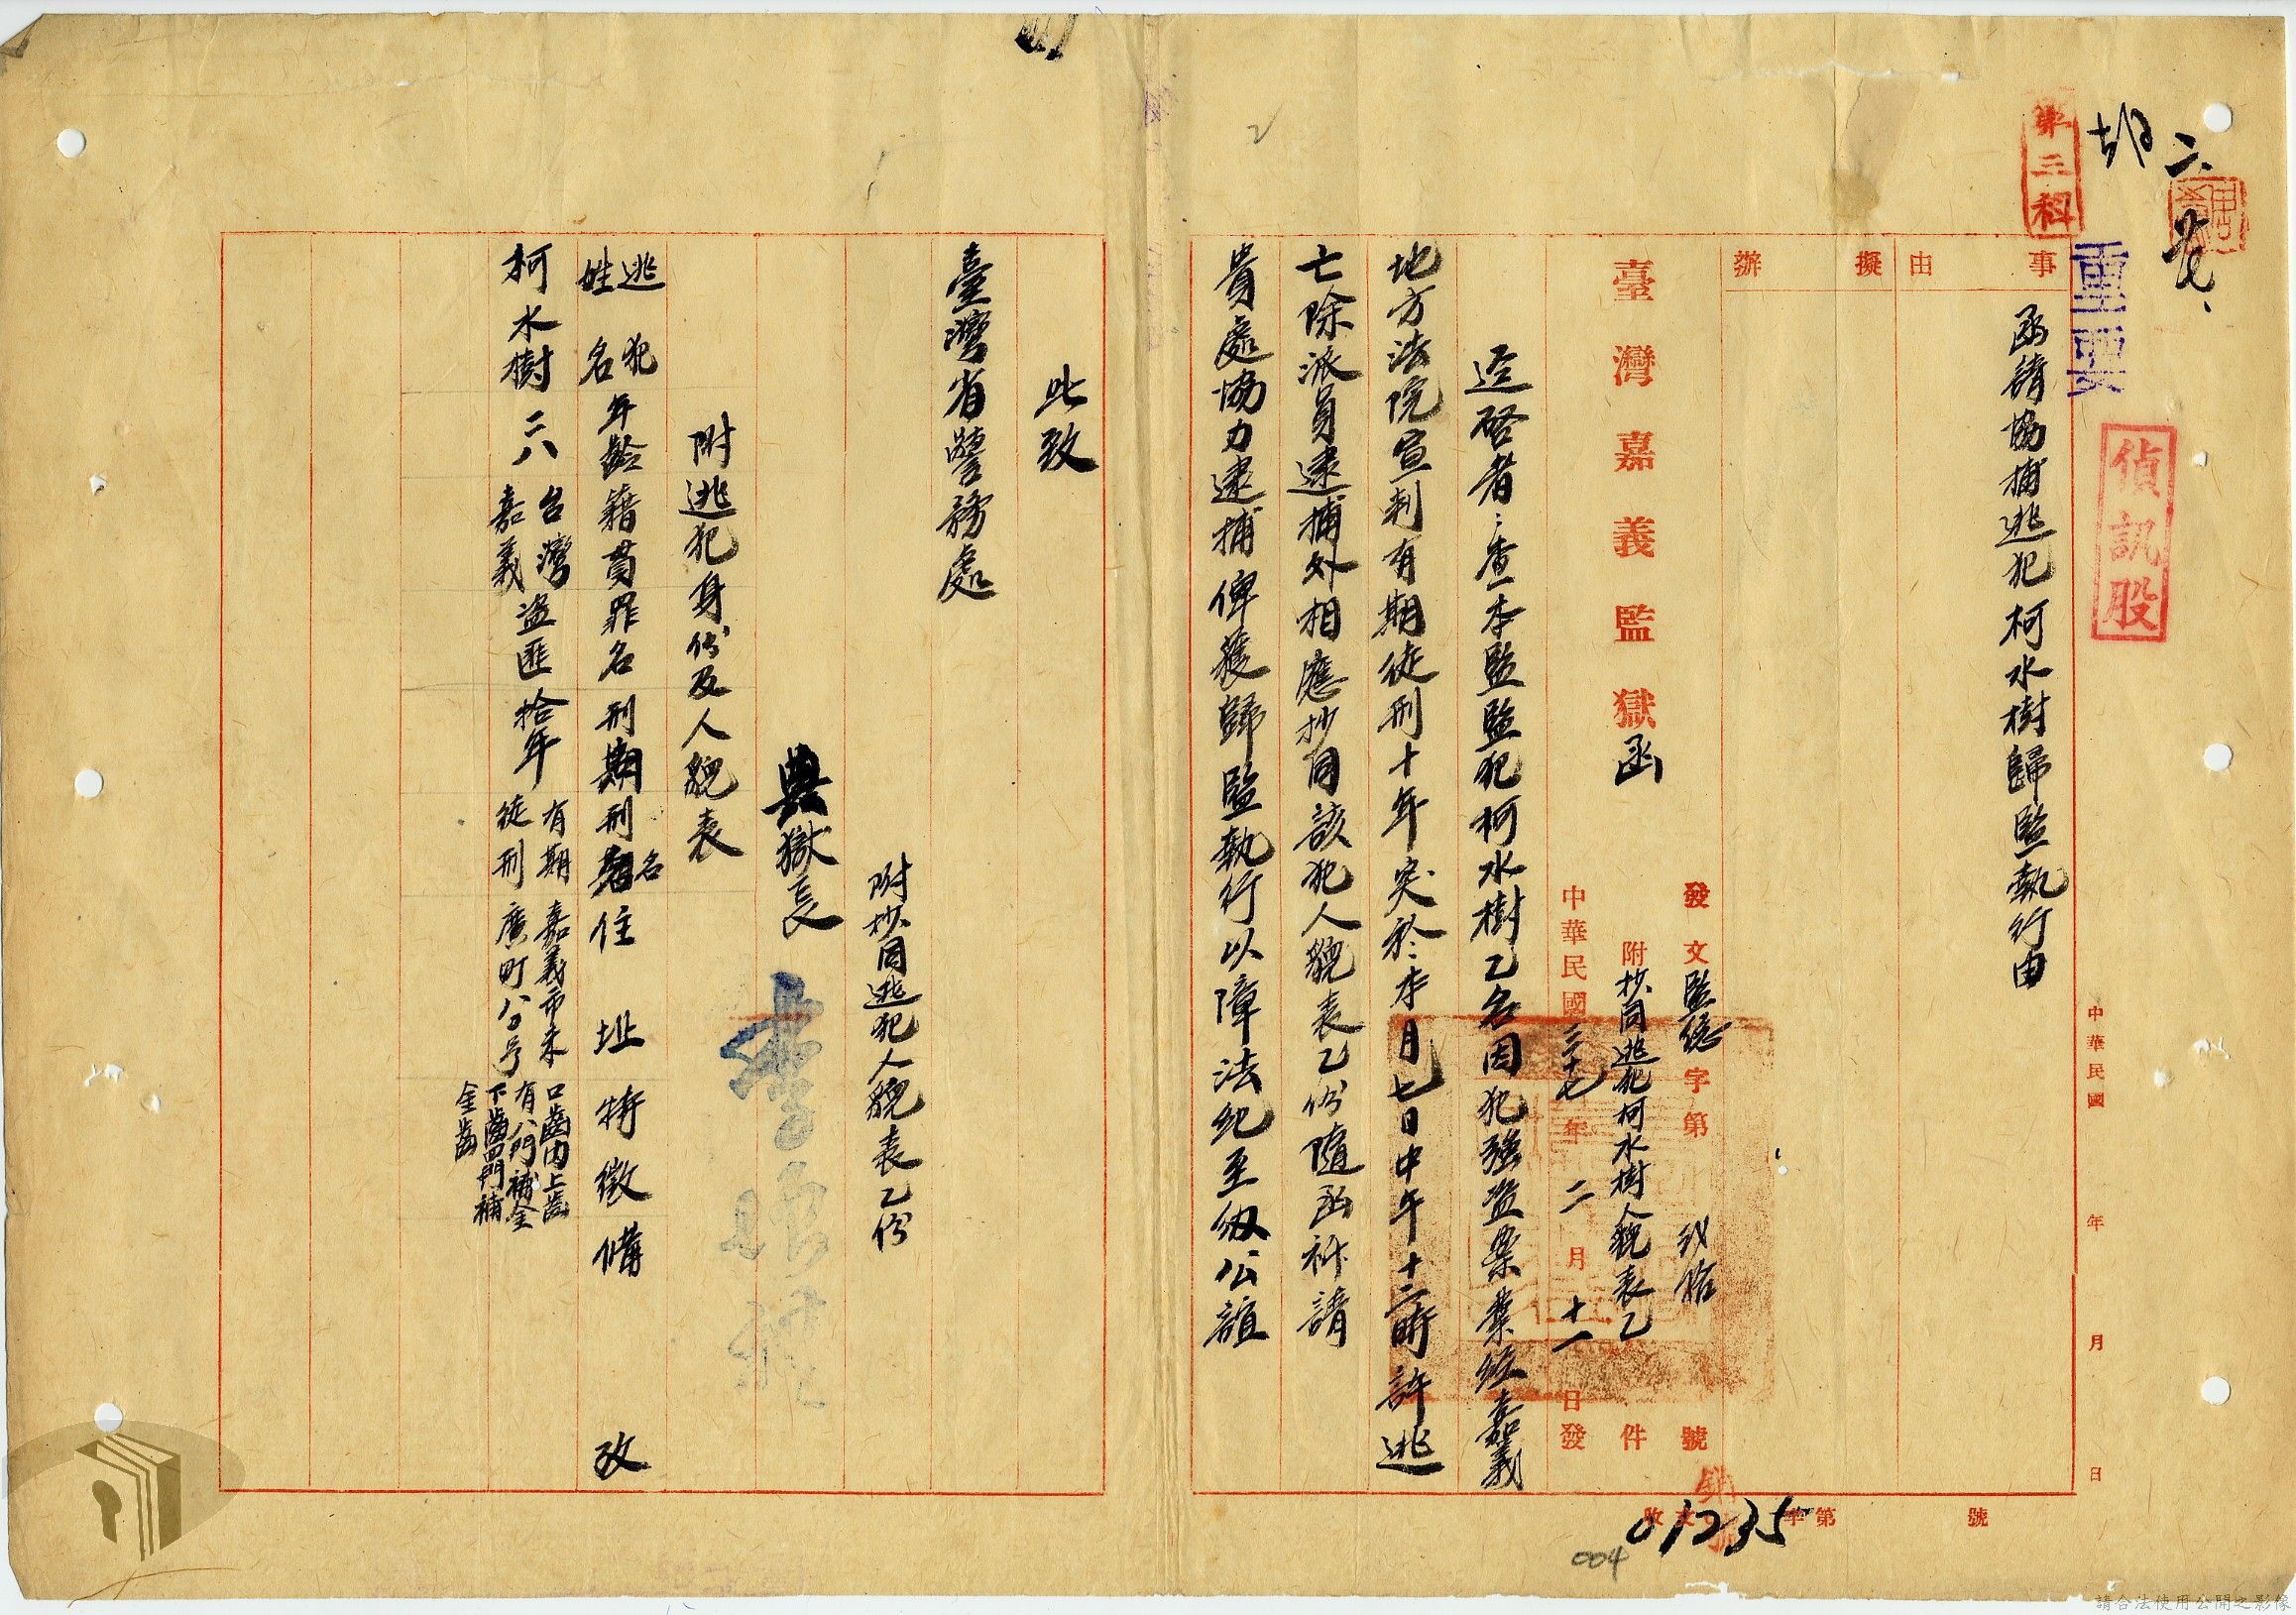 二
第三科
重要
偵訊股
中華民國 年 月 日
事由
函請協捕逃犯柯水樹歸監執行由
擬辦
發文監總字第 弍拾 號
附抄同逃犯柯水樹人貌表乙件
臺灣嘉義監獄函
中華民國三十七年二月十一日發
逕啓者:查本監監犯柯水樹乙名因犯强盗案業經嘉義
地方法院宣判有期徒刑十年突於本月七日中午十二時許逃
亡除派員逮捕外相應抄同該犯人貌表乙份隨函祈請
貴處協力逮捕俾獲歸監執行以障法紀至紉公誼
此致
臺灣省警務處
附抄同逃犯人貌表乙份
典獄長
附逃犯身份及人貌表
逃犯姓名 年齡 籍貫 罪名 刑期 刑名 住址 特徵 備攷
柯水樹 二八 台灣嘉義 盗匪 拾年 有期徒刑 嘉義市末廣町八号 口齒内上齒有八門補金下齒四門補金齒
收文 字第 號
01235
004
請合法使用公開之影像